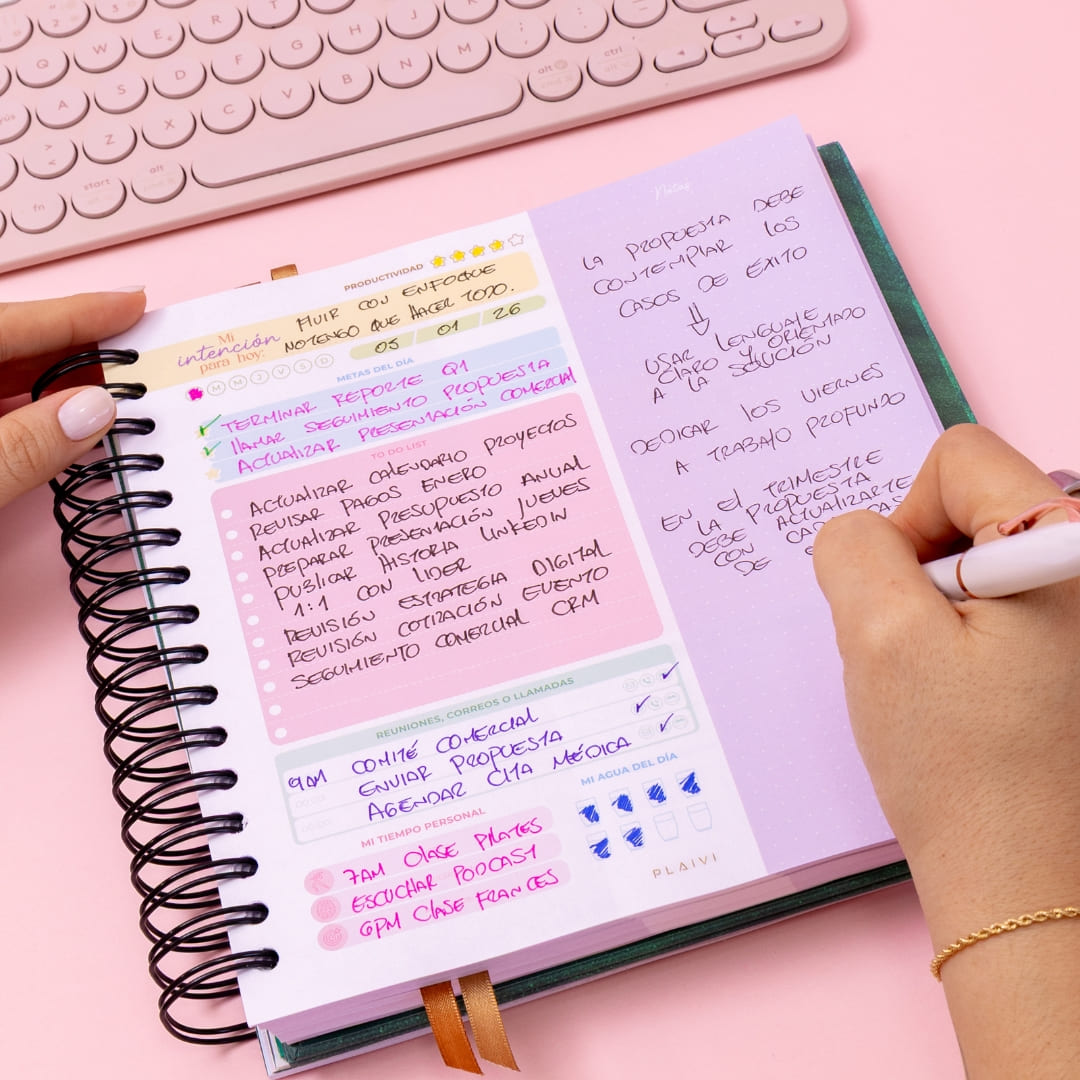 PRODUCTIVIDAD
Mi
intención
para hoy:
FLUIR CON ENFOQUE
NO TENGO QUE HACER TODO.
05 01 26
M M J V S D
METAS DEL DÍA
TERMINAR REPORTE Q1
LLAMAR SEGUIMIENTO PROPUESTA
ACTUALIZAR PRESENTACIÓN COMERCIAL
TO DO LIST
ACTUALIZAR CALENDARIO PROYECTOS
REVISAR PAGOS ENERO
ACTUALIZAR PRESUPUESTO ANUAL
PREPARAR PRESENTACIÓN JUEVES
PUBLICAR HISTORIA LINKEDIN
1:1 CON LIDER
REVISIÓN ESTRATEGIA DIGITAL
REVISIÓN COTIZACIÓN EVENTO
SEGUIMIENTO COMERCIAL CRM
REUNIONES, CORREOS O LLAMADAS
9AM COMITÉ COMERCIAL
ENVIAR PROPUESTA
AGENDAR CITA MÉDICA
MI TIEMPO PERSONAL
7AM CLASE PILATES
ESCUCHAR PODCAST
6PM CLASE FRANCES
MI AGUA DEL DÍA
PLAIVI
Notas
LA PROPUESTA DEBE
CONTEMPLAR LOS
CASOS DE EXITO
USAR LENGUAJE
CLARO Y ORIENTADO
A LA SOLUCIÓN
DEDICAR LOS VIERNES
A TRABAJO PROFUNDO
EN EL TRIMESTRE
LA PROPUESTA
DEBE ACTUALIZARTE
CON
DE
Q W E R T
A S D F G H J K L
Z X C V B N M
fn start alt alt ctrl